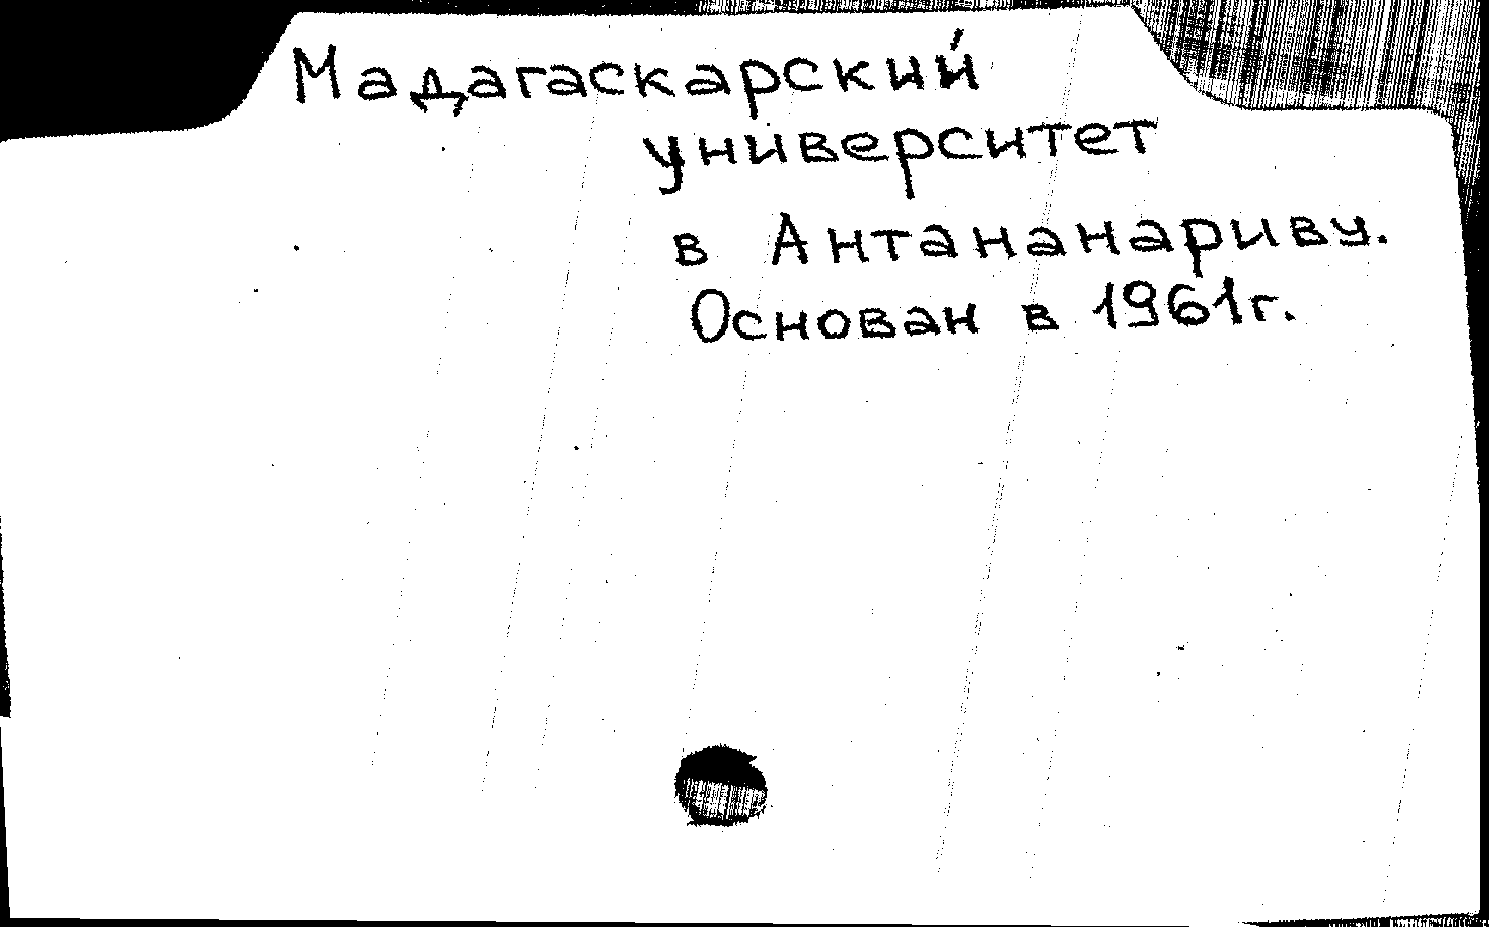 Мадагаскарский
университет
в Антананариву.
Основан в 1961г.